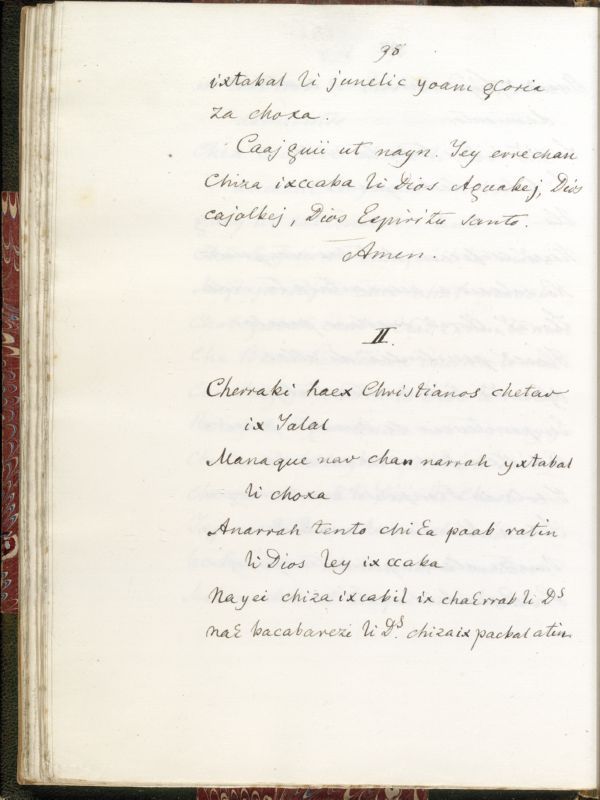 38
ixtabal li junelic yoam gloria
za choxa.
Caajguii ut nayn. Tey errechan
Chiza ixccaba li Dios Aguabej, Dios
cajolbej, Dios Espiritu santo.
Amen.
II.
Cherrabi haex Christianos chetau
ix Talal
Manaque nav chan narrah yxtabal
li choxa
Anarrah tento chiɛa paab ratin
li Dios ley ixccaba
Nayei chiza ixcabil ix chaɛrrab li Ds
naɛ bacabareze li Ds. chizaix pacbal atin